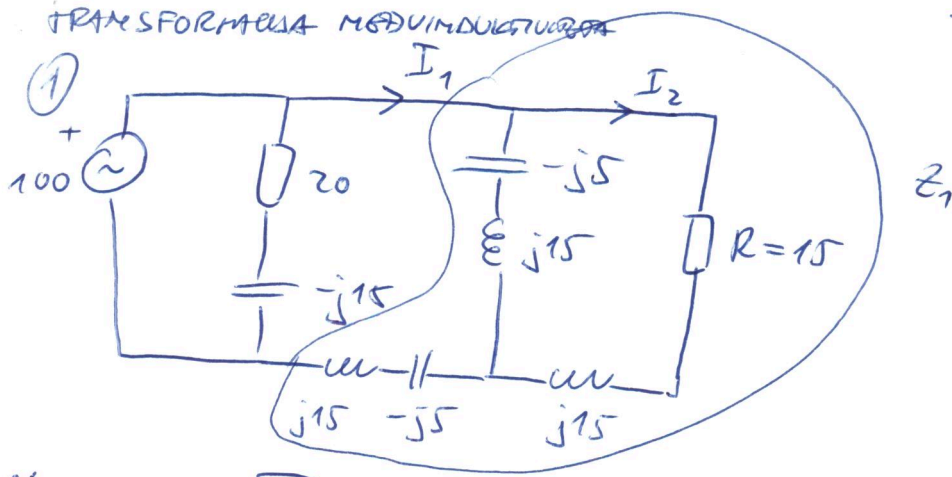 TRANSFORMACIJA MEĐUINDUKTIVITETA
①
I₁
I₂
+
100
20
-j5
j15
R=15
Z₁
-j15
j15 -j5 j15